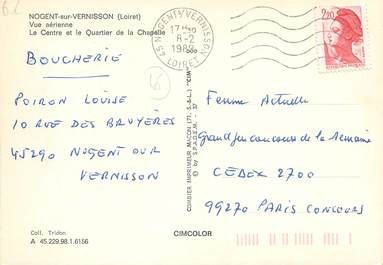 62
NOGENT-sur-VERNISSON (Loiret)
Vue aérienne
Le Centre et le Quartier de la Chapelle
BOUCHERIE
POIRON LOUISE
10 RUE DES BRUYÈRES
45290 NOGENT OUR
VERNISSON
Coll. Tridon
A 45.229.98.1.6156
COMBIER IMPRIMEUR MACON (71. S.-&-L.) "CIM"
© by S.P.A.D.E.M.
45 NOGENT S/ VERNISSON
17H
8-2
1989
LOIRET
2,20
Femme Actuelle
Grand jeu concours de la semaine
CEDEX 2700
99270 PARIS CONCOURS
CIMCOLOR